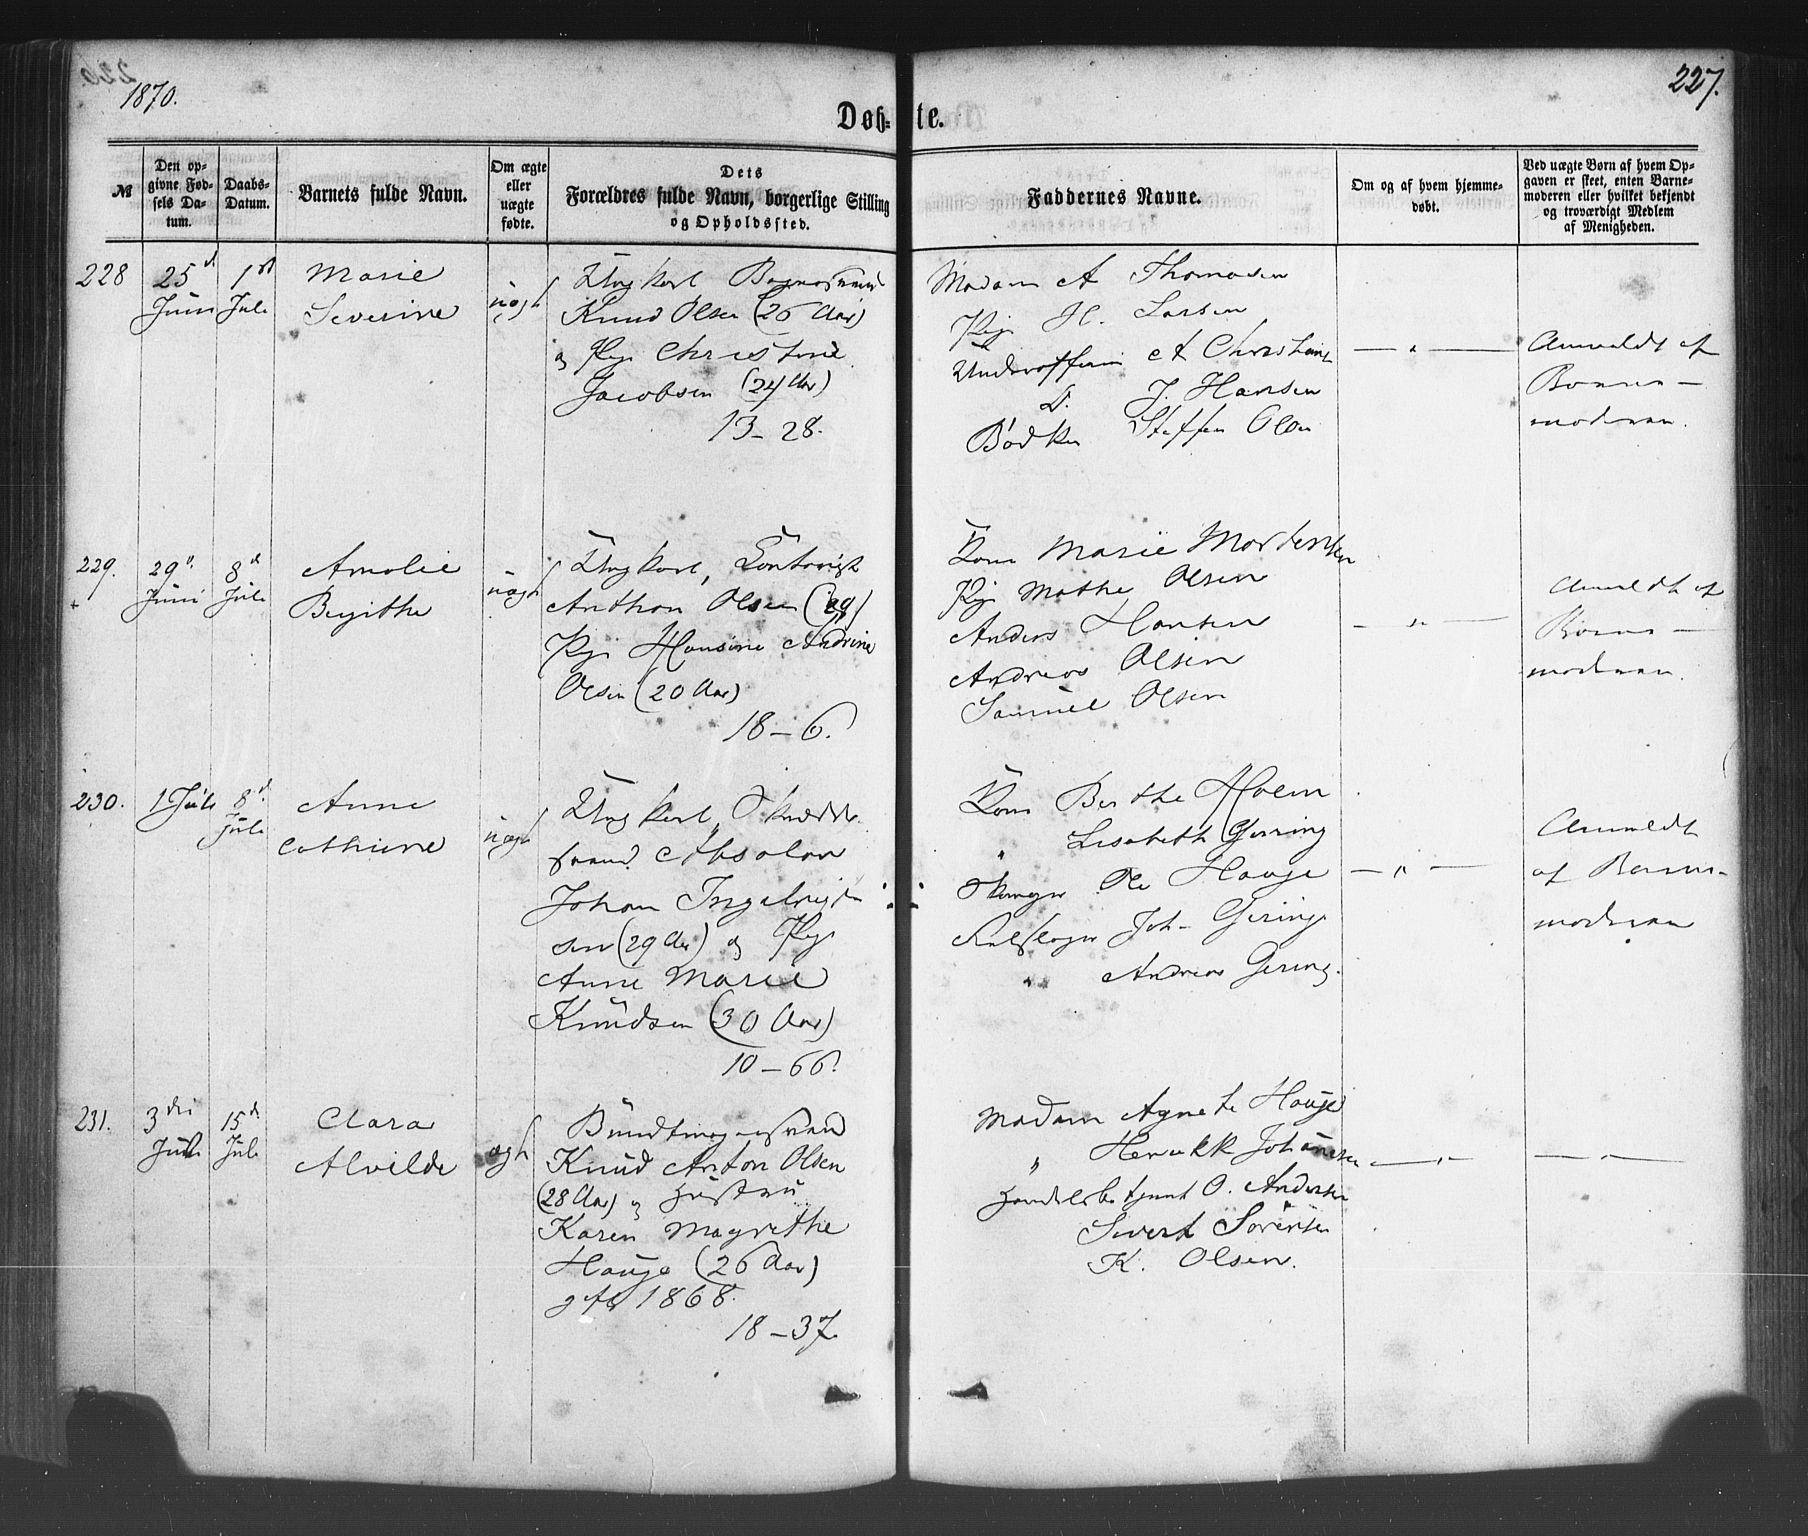 1870.
227.
Døb- te.
№
Den op-
givne Fød-
sels Da-
tum.
Daabs-
Datum.
Barnets fulde Navn.
Om ægte
eller
uægte
fødte.
Dets
Forældres fulde Navn, borgerlige Stilling
og Opholdssted.
Faddernes Navne.
Om og af hvem hjemme-
døbt.
Ved uægte Børn af hvem Op-
gaven er skeet, enten Barne-
moderen eller hvilket bekjendt
og troværdigt Medlem
af Menigheden.
228
25
Juni
1
Juli
Marie
Severine
uægte
Ungkarl
Knud Olsen (26 Aar)
og Pige Christine
Jacobsen (24 Aar)
13 - 28.
Madam A Thomasen
Pige H. Larsen
Underofficer A Christians
D. J. Hansen
Bødker Steffen Olsen
— " —
Anmeldt af
Barne-
moderen.
229.
29
Juni
8
Juli
Amalie
Birgithe
uægte
Ungkarl,
Anthon Olsen (29)
Pige Hansine Andrine
Olsen (20 Aar)
18 - 6.
Kone Marie Mortensen
Pige Mathe Olsen
Anders Hansen
Andreas Olsen
Samuel Olsen
— " —
Anmeldt af
Barne-
moderen.
230.
1 Juli
8
Juli
Anne
Cathrine
uægte
Ungkarl, Skrædder
svend Absolon
Johan Ingebrigt-
sen (29 Aar) og Pige
Anne Marie
Knudsen (30 Aar)
10 - 66.
Kone Berthe Holm
" Lisabeth Giering
Ole Hauge
Joh. Giering
" Andreas Giering.
— " —
Anmeldt
af Barne-
moderen
231.
3
Juli
15
Juli
Clara
Alvilde
ægte
Bundtmagersvend
Knud Anton Olsen
(28 Aar) og Hustru
Karen Magrethe
Hauge (26 Aar)
gift 1868.
18 - 37.
Madam Agnete Hauge
" Henrikke Johannesen
Handelsbetjent O. Andersen
Sivert Sørensen
K. Olsen.
— " —
— " —